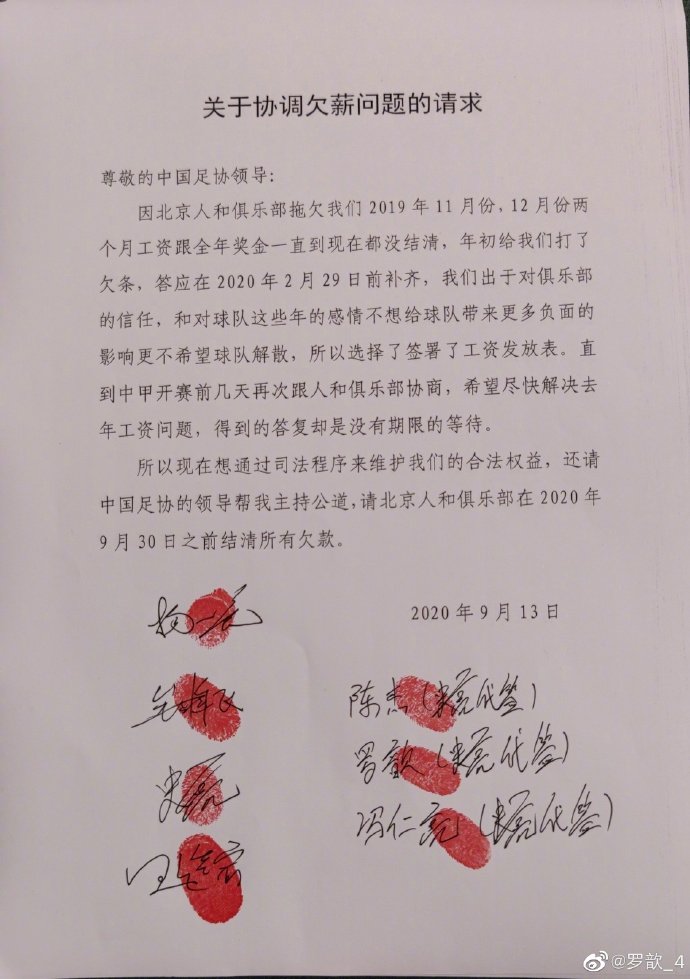 关于协调欠薪问题的请求
尊敬的中国足协领导：
因北京人和俱乐部拖欠我们 2019 年 11 月份，12 月份两
个月工资跟全年奖金一直到现在都没结清，年初给我们打了
欠条，答应在 2020 年 2 月 29 日前补齐，我们出于对俱乐部
的信任，和对球队这些年的感情不想给球队带来更多负面的
影响更不希望球队解散，所以选择了签署了工资发放表。直
到中甲开赛前几天再次跟人和俱乐部协商，希望尽快解决去
年工资问题，得到的答复却是没有期限的等待。
所以现在想通过司法程序来维护我们的合法权益，还请
中国足协的领导帮我主持公道，请北京人和俱乐部在 2020 年
9 月 30 日之前结清所有欠款。
2020 年 9 月 13 日
陈杰（史亮代签）
史亮
罗歆（史亮代签）
冯仁亮（史亮代签）
@罗歆_4